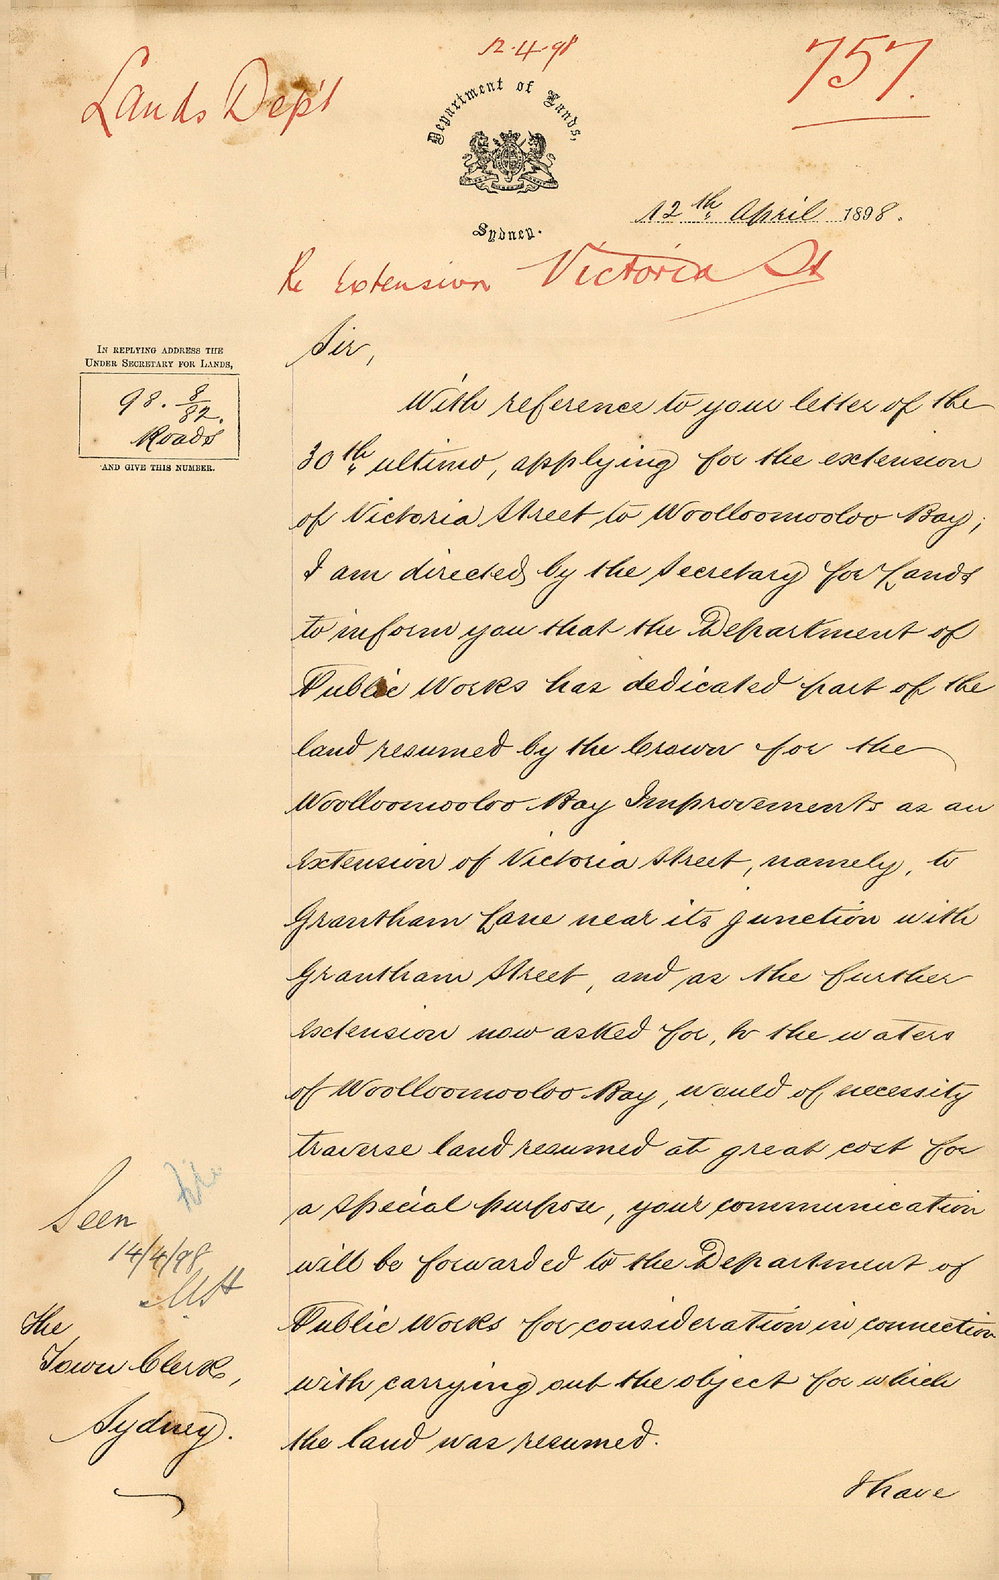 12.4.98
757.
Lands Dep't
Department of Lands,
Sydney.
12th April 1898.
Re Extension Victoria St
IN REPLYING ADDRESS THE
UNDER SECRETARY FOR LANDS,
98. 8/82.
Roads
AND GIVE THIS NUMBER.
Sir,
With reference to your letter of the
30th ultimo, applying for the extension
of Victoria Street to Woolloomooloo Bay;
I am directed by the Secretary for Lands
to inform you that the Department of
Public Works has dedicated part of the
land resumed by the Crown for the
Woolloomooloo Bay Improvements as an
extension of Victoria Street, namely, to
Grantham Lane near its junction with
Grantham Street, and as the further
extension now asked for, to the waters
of Woolloomooloo Bay, would of necessity
traverse land resumed at great cost for
a special purpose, your communication
will be forwarded to the Department of
Public Works for consideration in connection
with carrying out the object for which
the land was resumed.
I have
Seen
14/4/98
The
Town Clerk,
Sydney.